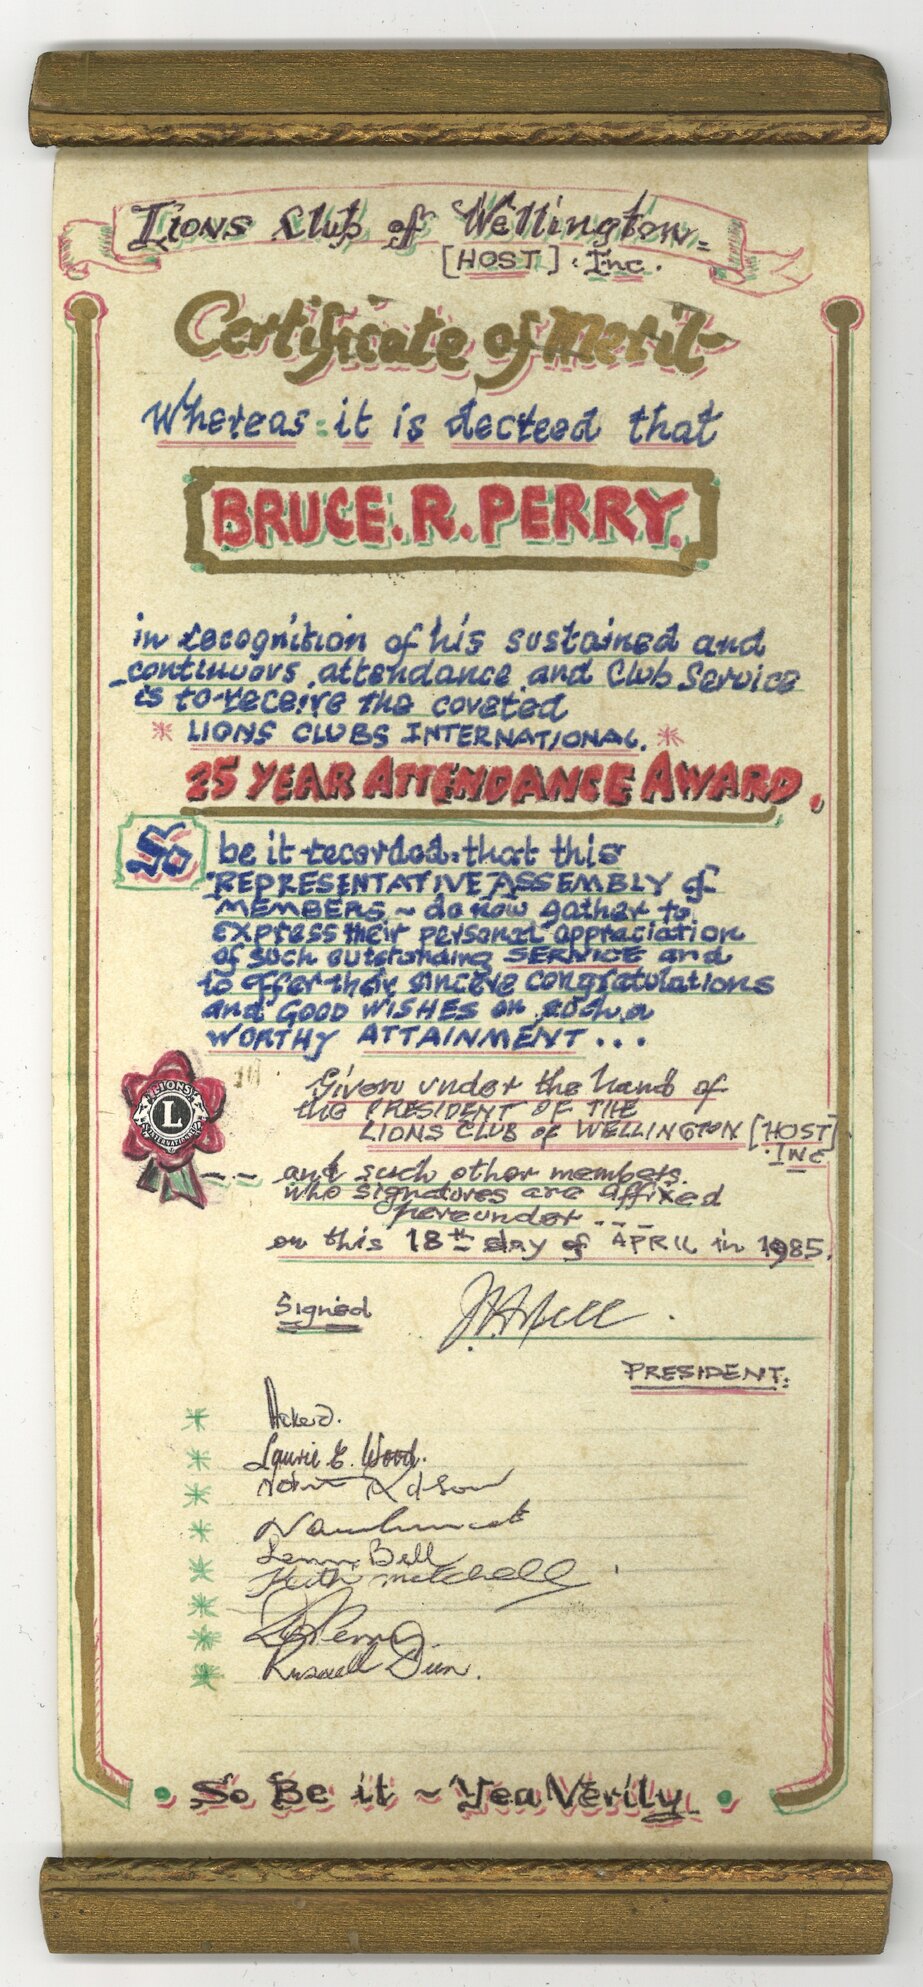 Lions Club of Wellington
[HOST] . Inc.
Certificate of Merit
Whereas it is decreed that
BRUCE. R. PERRY.
in recognition of his sustained and
continuous attendance and Club Service
is to receive the coveted
* LIONS CLUBS INTERNATIONAL. *
25 YEAR ATTENDANCE AWARD.
So be it recorded that this
REPRESENTATIVE ASSEMBLY of
MEMBERS ~ do now gather to
express their personal appreciation
of such outstanding SERVICE and
to offer their sincere congratulations
and GOOD WISHES on such a
WORTHY ATTAINMENT ...
LIONS
L
INTERNATIONAL
Given under the hand of
the PRESIDENT OF THE
LIONS CLUB of WELLINGTON [HOST]
. Inc
-- and such other members
who signatures are affixed
hereunder ---
on this 18th day of APRIL in 1985.
Signed
PRESIDENT.
Laurie E. Wood.
Bell
Keith Mitchell
Perry
Russell
So Be it ~ Yea Verily